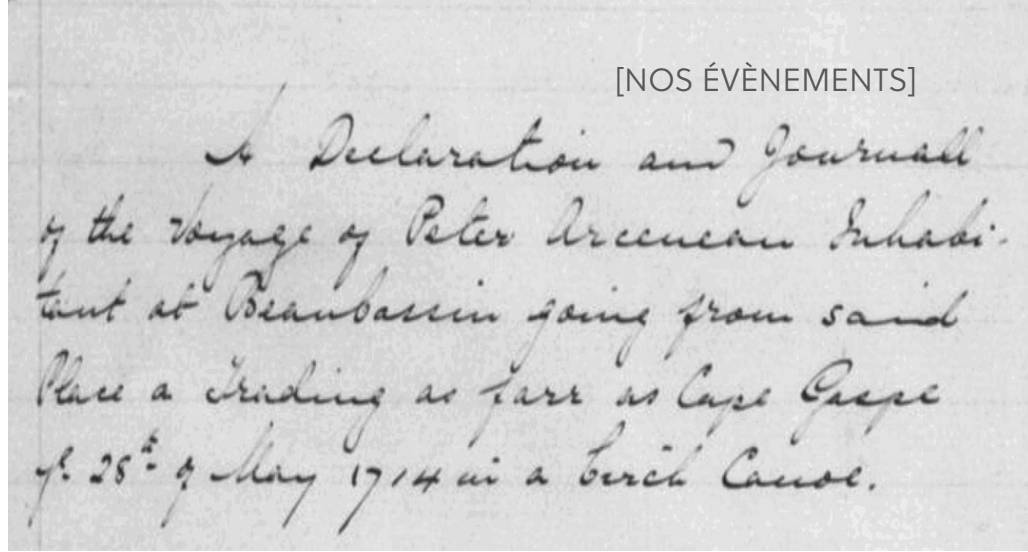 [NOS ÉVÈNEMENTS]
A Declaration and Journall
of the Voyage of Peter Arceneau Inhabi-
tant at Beaubassin going from said
Place a Trading as farr as Cape Gaspe
ye 28th of May 1714 in a birch Canoe.